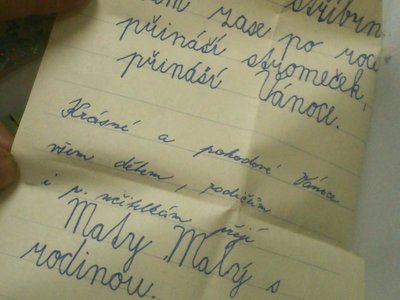 zase po roce
přináší stromeček,
přináší Vánoce.
Krásné a pohodové Vánoce
všem dětem, rodičům
i p. učitelkám přejí
Maty Malý s
rodinou.